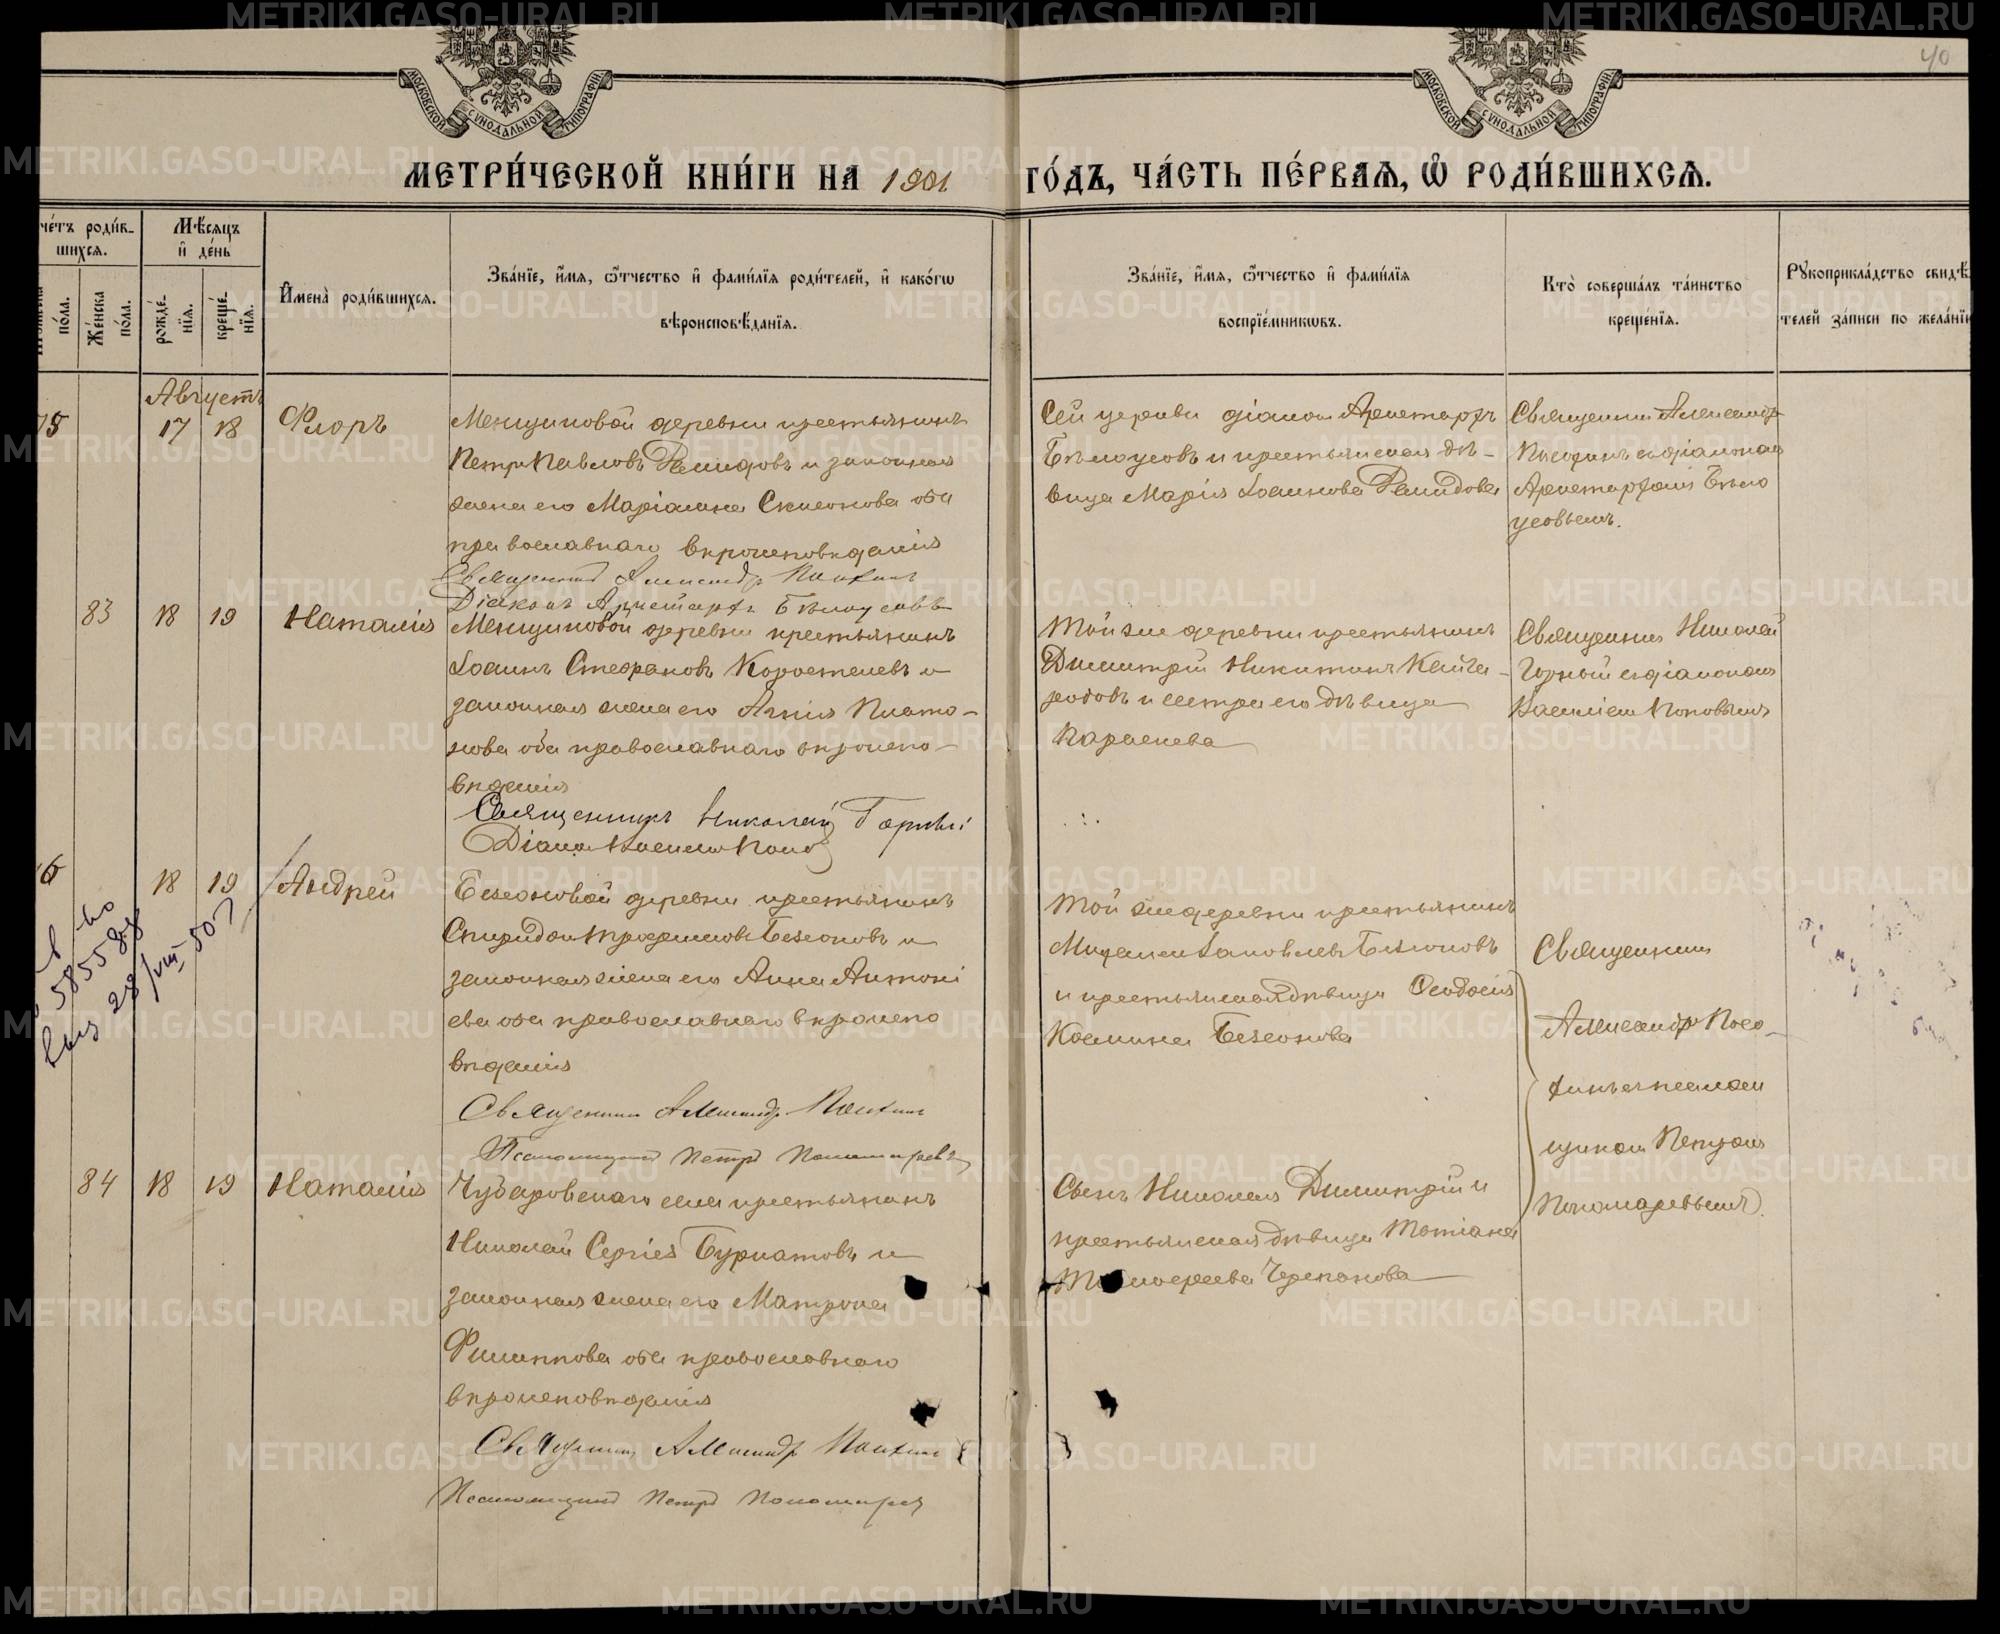 40
МОСКОВСКОЙ СѴНОДАЛЬНОЙ ТИПОГРАФІИ
МОСКОВСКОЙ СѴНОДАЛЬНОЙ ТИПОГРАФІИ
МЕТРИ́ЧЕСКОЙ КНИ́ГИ НА 1901 ГО́ДЪ, ЧА́СТЬ ПЕ́РВАѦ, Ѽ РОДИ́ВШИХСѦ.
че́тъ роди́в-
шихсѧ.
Мѣ́сѧцъ
и҆ де́нь
по́ла.
Же́нска
по́ла.
рожде́-
нїѧ.
креще́-
нїѧ.
И҆мена̀ роди́вшихсѧ.
Зва́нїе, и҆́мѧ, ѻ҆́тчество и҆ фамі́лїѧ роди́телей, и҆ како́гѡ
вѣроисповѣ́данїѧ.
Зва́нїе, и҆́мѧ, ѻ҆́тчество и҆ фамі́лїѧ
воспрїе́мникѡвъ.
Кто̀ соверша́лъ та́инство
креще́нїѧ.
Рꙋкоприкла́дство свидѣ́
телей за́писи по жела́нїю
Августъ
75 17 18 Флоръ
Менщиковой деревни крестьянинъ
Петръ Павловъ Демидовъ и законная
жена его Маріамна Симонова оба
православнаго вѣроисповѣданія
Священникъ Александръ
Діаконъ Аристархъ Бѣлоусовъ
Сей церкви діаконъ Аристархъ
Бѣлоусовъ и крестьянская дѣ-
вица Марія Іоаннова Демидова
Священникъ Александръ
съ діакономъ
Аристархомъ Бѣло
усовымъ.
83 18 19 Наталія
Менщиковой деревни крестьянинъ
Іоаннъ Стефановъ Коростелевъ и
законная жена его Агнія Плато-
нова оба православнаго вѣроиспо-
вѣданія
Священникъ Николай Горный
Діаконъ Василій Поповъ
Той же деревни крестьянинъ
Димитрій Никитинъ Кайга-
родовъ и сестра его дѣвица
Параскева
Священникъ Николай
Горный съ діакономъ
Василіемъ Поповымъ
18 19 Андрей
585587
28/VIII 50
Безсоновой деревни крестьянинъ
Спиридонъ Трофимовъ Безсоновъ и
законная жена его Анна Антоні
ева оба православнаго вѣроиспо
вѣданія
Священникъ Александръ
Псаломщикъ Петръ Пономаревъ
Той же деревни крестьянинъ
Михаилъ Іаковлевъ Безсоновъ
и крестьянская дѣвица Ѳеодосія
Космина Безсонова
Священникъ
Александръ
съ псалом
щикомъ Петромъ
Пономаревымъ
84 18 19 Наталія
Чубаровскаго села крестьянинъ
Николай Сергіевъ Бурматовъ и
законная жена его Матрона
Филиппова оба православнаго
вѣроисповѣданія
Священникъ Александръ
Псаломщикъ Петръ Пономаревъ
Сынъ Николая Димитрій и
крестьянская дѣвица Татіана
Тимофеева Черепанова
METRIKI.GASO-URAL.RU